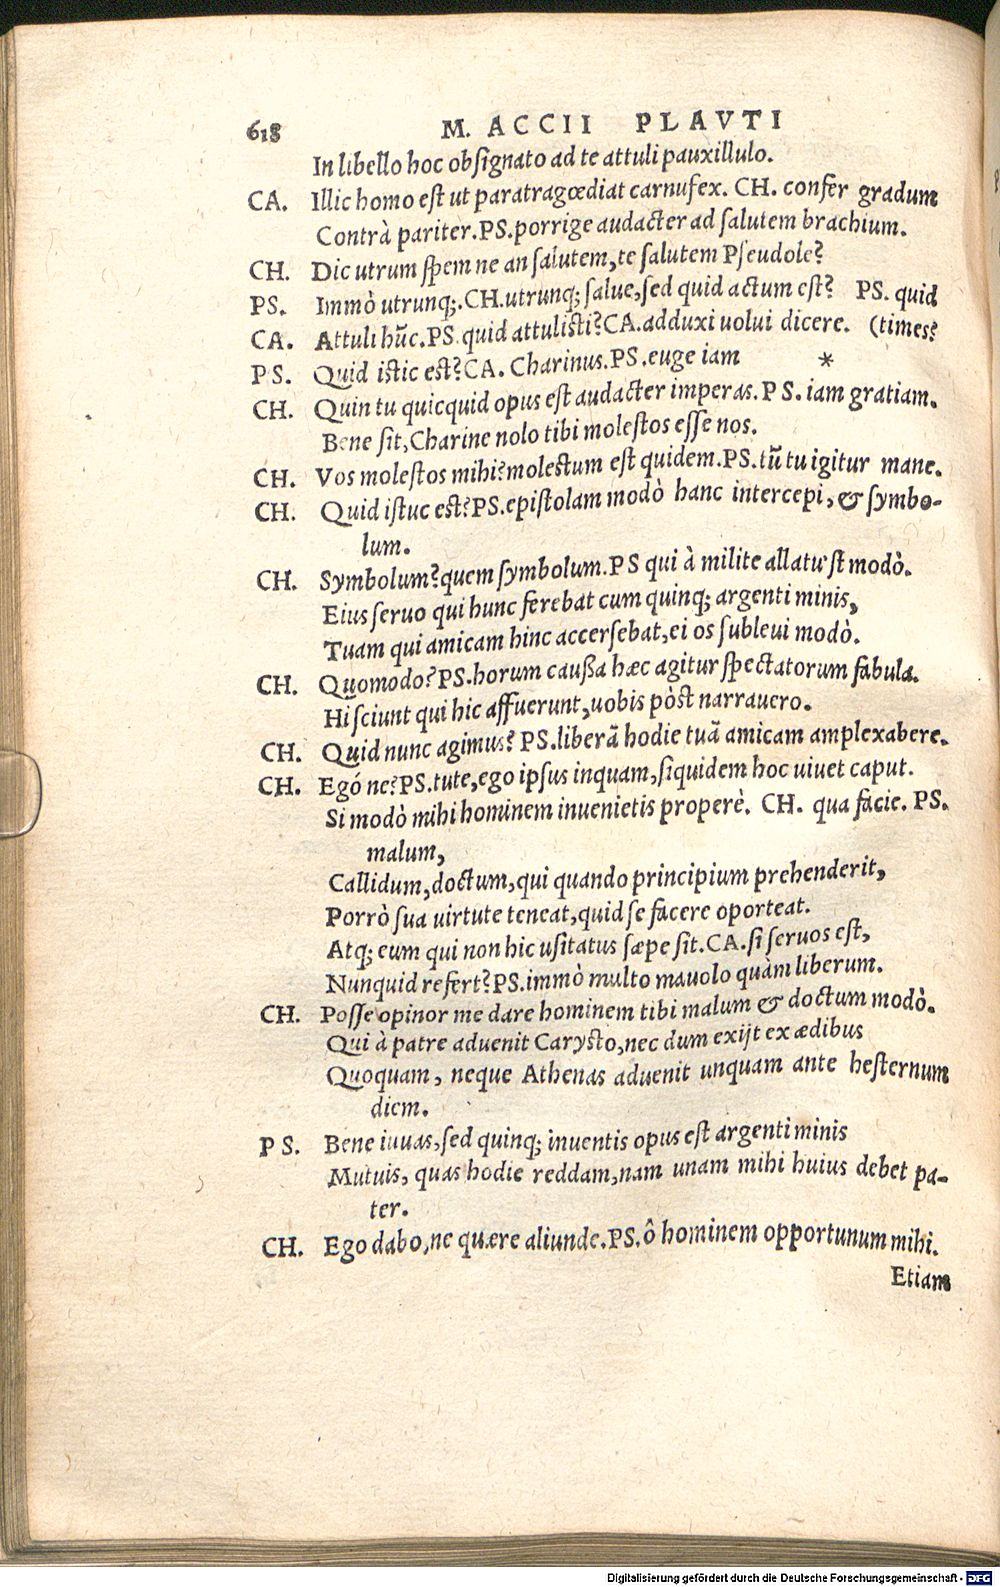 618 M. ACCII PLAVTI
In libello hoc obsignato ad te attuli pauxillulo.
CA. Illic homo est ut paratragœdiat carnufex. CH. confer gradum
Contrà pariter.PS.porrige audacter ad salutem brachium.
CH. Dic utrum spem ne an salutem,te salutem Pseudole?
PS. Immò utrunq;.CH.utrunq; salue,sed quid actum est? PS. quid
CA. Attuli hūc.PS.quid attulisti?CA.adduxi uolui dicere. (times?
PS. Quid istic est?CA. Charinus.PS.euge iam *
CH. Quin tu quicquid opus est audacter imperas.PS.iam gratiam.
Bene sit,Charine nolo tibi molestos esse nos.
CH. Vos molestos mihi?molectum est quidem.PS.tū tu igitur mane.
CH. Quid istuc est?PS.epistolam modò hanc intercepi,& symbo-
lum.
CH. Symbolum?quem symbolum.PS qui à milite allatu'st modò.
Eius seruo qui hunc ferebat cum quinq; argenti minis,
Tuam qui amicam hinc accersebat,ei os subleui modò.
CH. Quomodo?PS.horum caußa hæc agitur spectatorum fabula.
Hi sciunt qui hic affuerunt,uobis pòst narrauero.
CH. Quid nunc agimus? PS.liberā hodie tuā amicam amplexabere.
CH. Egó ne?PS.tute,ego ipsus inquam,siquidem hoc uiuet caput.
Si modò mihi hominem inuenietis properè. CH. qua facie. PS.
malum,
Callidum,doctum,qui quando principium prehenderit,
Porrò sua uirtute teneat,quid se facere oporteat.
Atq; eum qui non hic usitatus sæpe sit.CA.si seruos est,
Nunquid refert?PS.immò multo mauolo quàm liberum.
CH. Posse opinor me dare hominem tibi malum & doctum modò.
Qui à patre aduenit Carysto,nec dum exijt ex ædibus
Quoquam, neque Athenas aduenit unquam ante hesternum
diem.
PS. Bene iuuas,sed quinq; inuentis opus est argenti minis
Mutuis, quas hodie reddam,nam unam mihi huius debet pa-
ter.
CH. Ego dabo,ne quære aliunde.PS.ô hominem opportunum mihi.
Etiam
Digitalisierung gefördert durch die Deutsche Forschungsgemeinschaft - DFG